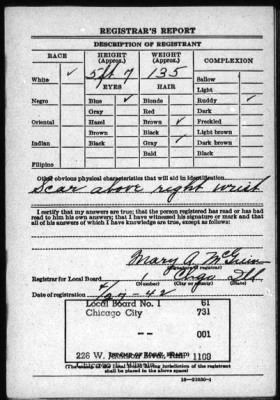 REGISTRAR'S REPORT
DESCRIPTION OF REGISTRANT
RACE HEIGHT (Approx.) WEIGHT (Approx.) COMPLEXION
5 ft 7 135
White ✓ Sallow
EYES HAIR Light
Negro Blue ✓ Blonde Ruddy ✓
Gray Red Dark
Oriental Hazel Brown ✓ Freckled
Brown Black Light brown
Indian Black Gray Dark brown
Bald Black
Filipino
Other obvious physical characteristics that will aid in identification
Scar above right wrist
I certify that my answers are true; that the person registered has read or has had
read to him his own answers; that I have witnessed his signature or mark and that
all of his answers of which I have knowledge are true, except as follows:
Mary A.
(Signature of registrar)
Registrar for Local Board 1 Chgo Ill
(Number) (City or county) (State)
Date of registration 4/27-42
Local Board No. 1 61
Chicago City 731
001
226 W. Jackson Blvd. Rm 1109
Chicago, Illinois
(STAMP OF LOCAL BOARD)
(The stamp of the Local Board having jurisdiction of the registrant
shall be placed in the above space)